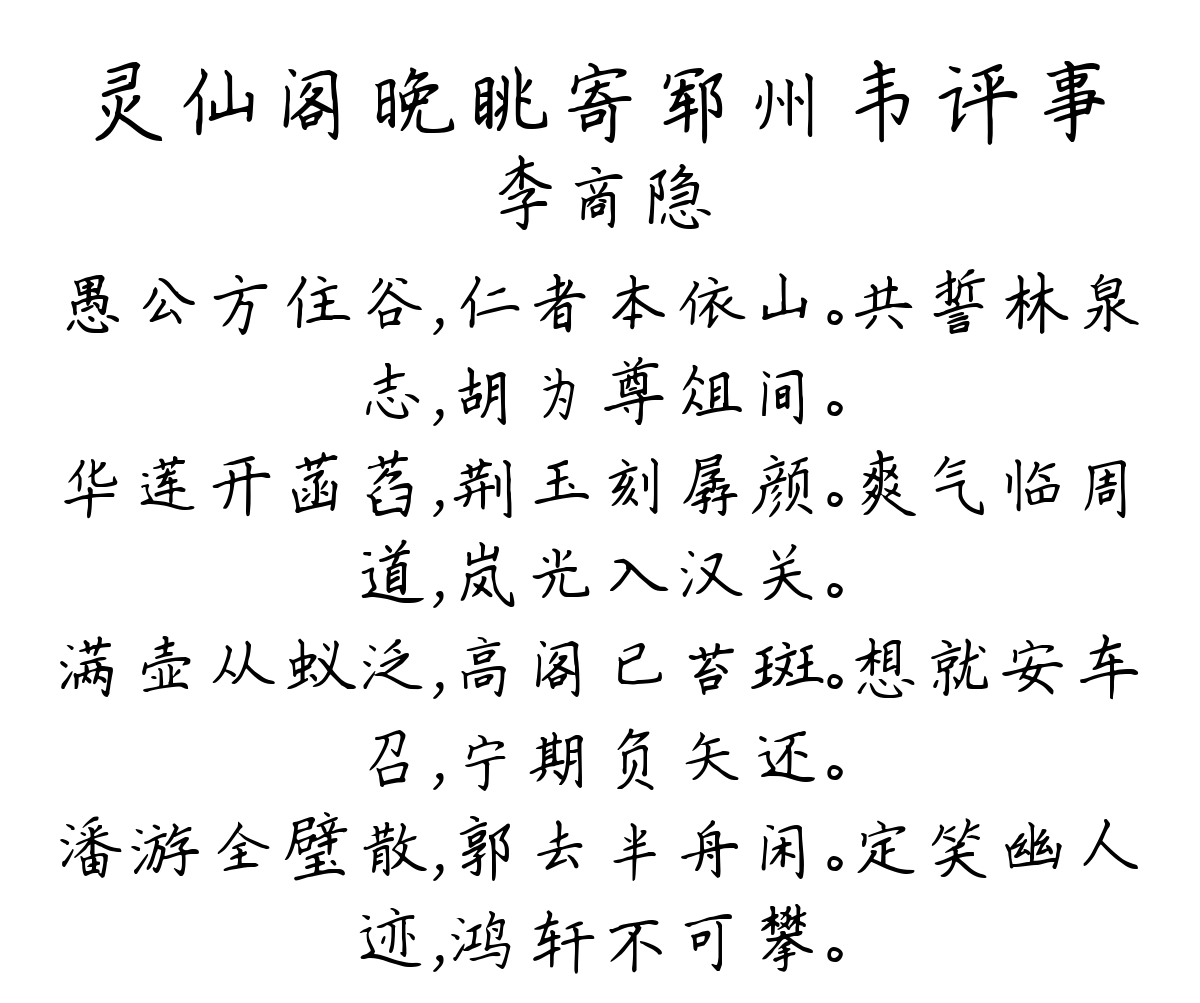 灵仙阁晚眺寄郓州韦评事
李商隐
愚公方住谷,仁者本依山。共誓林泉
志,胡为尊俎间。
华莲开菡萏,荆玉刻孱颜。爽气临周
道,岚光入汉关。
满壶从蚁泛,高阁已苔斑。想就安车
召,宁期负矢还。
潘游全璧散,郭去半舟闲。定笑幽人
迹,鸿轩不可攀。